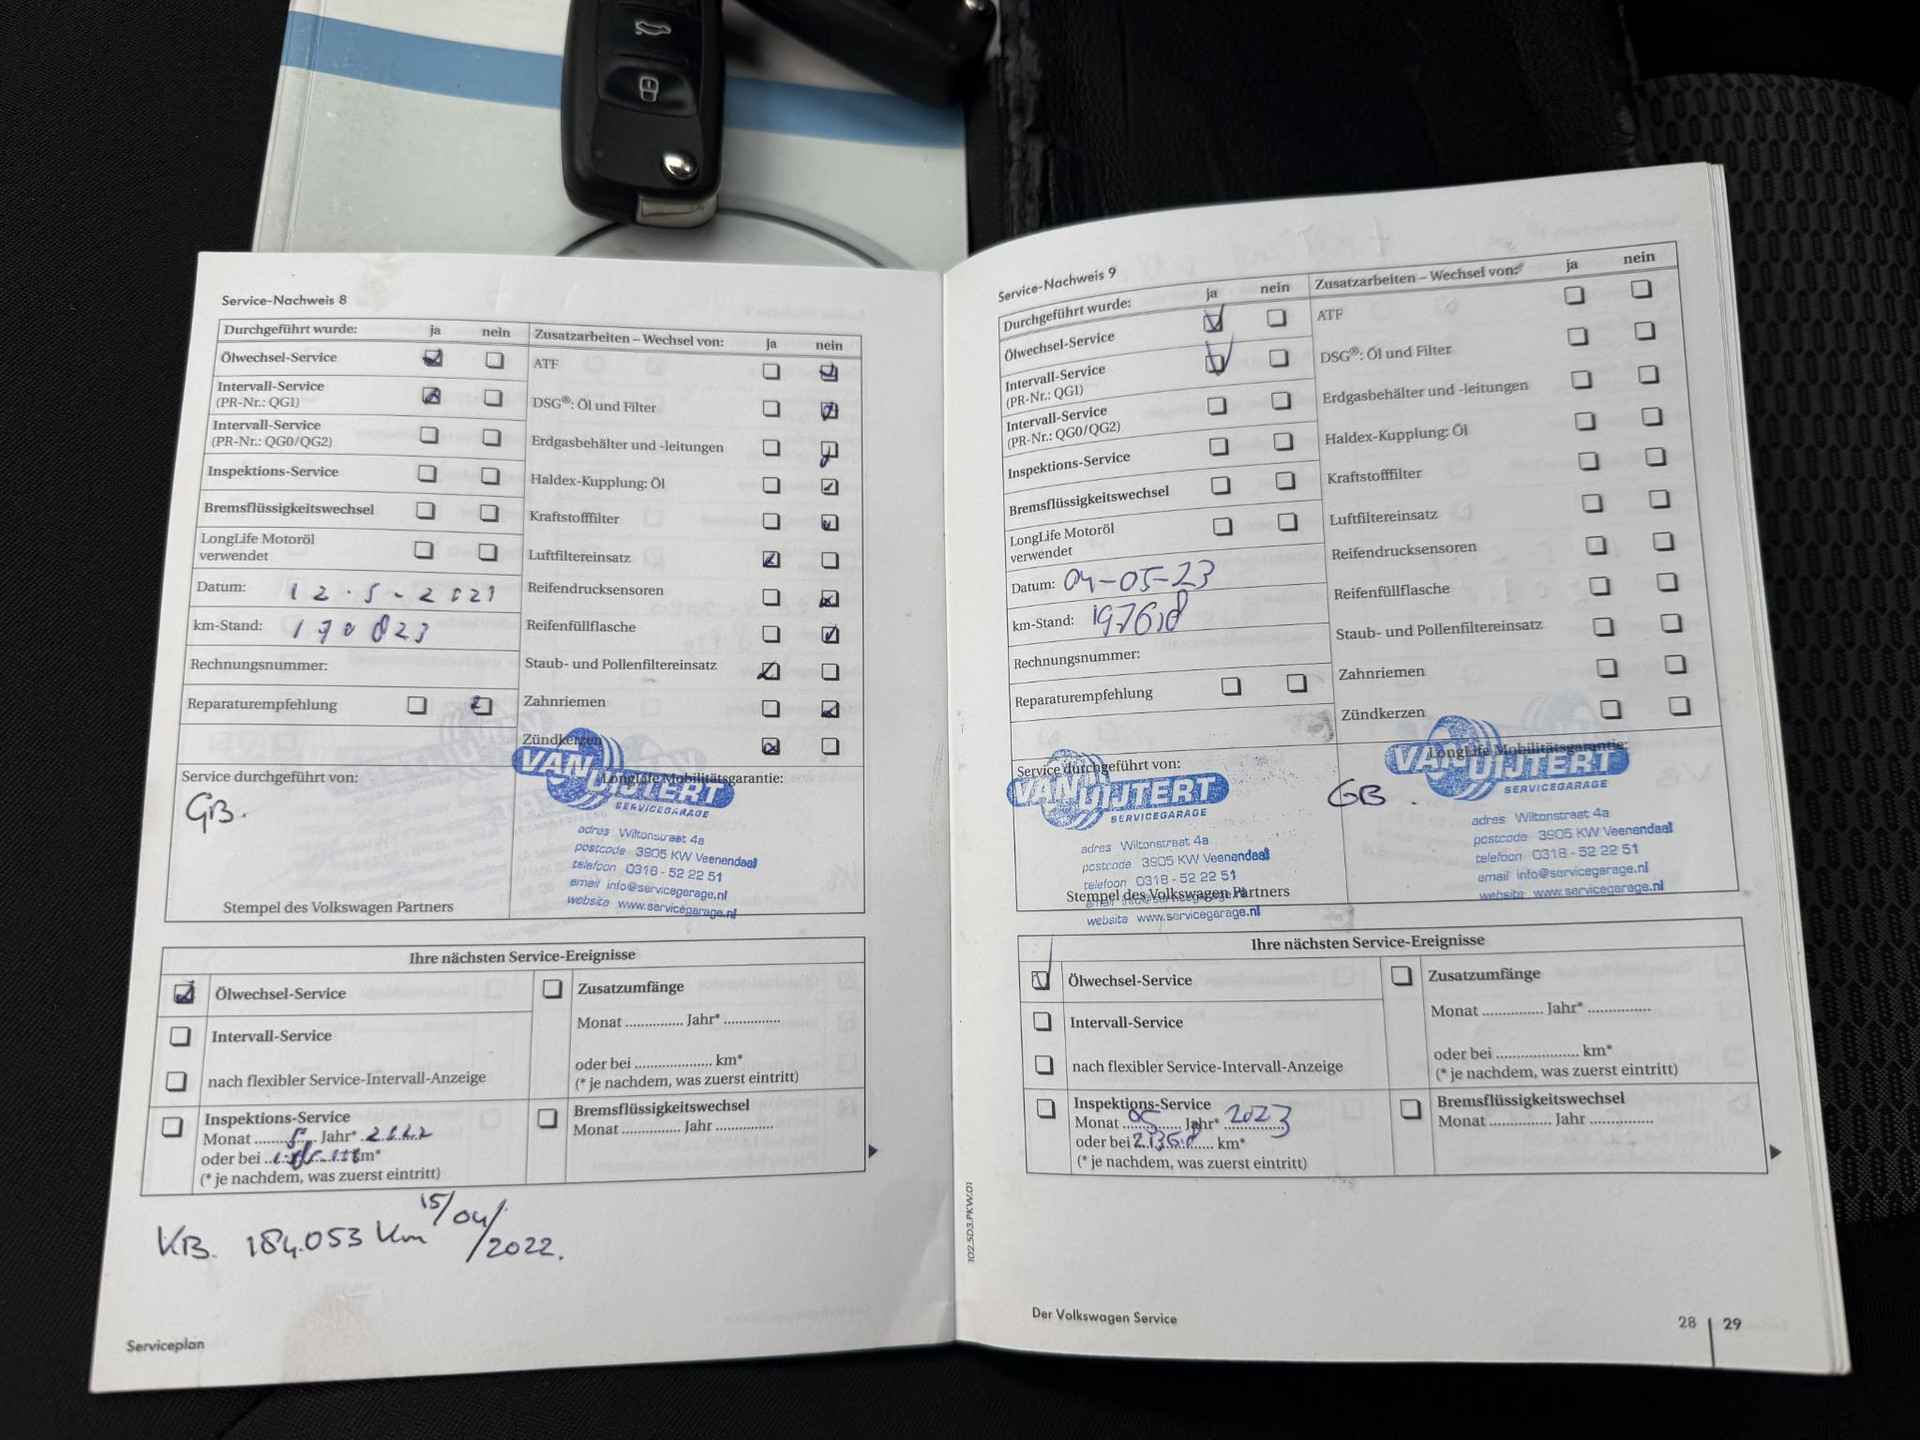 Service-Nachweis 8
Durchgeführt wurde: ja nein
Ölwechsel-Service
Intervall-Service
(PR-Nr.: QG1)
Intervall-Service
(PR-Nr.: QG0/QG2)
Inspektions-Service
Bremsflüssigkeitswechsel
LongLife Motoröl
verwendet
Datum: 12-5-2021
km-Stand: 170823
Rechnungsnummer:
Reparaturempfehlung
Zusatzarbeiten – Wechsel von: ja nein
ATF
DSG®: Öl und Filter
Erdgasbehälter und -leitungen
Haldex-Kupplung: Öl
Kraftstofffilter
Luftfiltereinsatz
Reifendrucksensoren
Reifenfüllflasche
Staub- und Pollenfiltereinsatz
Zahnriemen
Zündkerzen
Service durchgeführt von:
GB.
Stempel des Volkswagen Partners
LongLife Mobilitätsgarantie:
VAN UIJTERT
SERVICEGARAGE
adres Wiltonstraat 4a
postcode 3905 KW Veenendaal
telefoon 0318 - 52 22 51
email info@servicegarage.nl
website www.servicegarage.nl
Ihre nächsten Service-Ereignisse
Ölwechsel-Service
Intervall-Service
nach flexibler Service-Intervall-Anzeige
Inspektions-Service
Monat ....5.... Jahr* .2022
oder bei km*
(* je nachdem, was zuerst eintritt)
Zusatzumfänge
Monat ............... Jahr* ..............
oder bei .................... km*
(* je nachdem, was zuerst eintritt)
Bremsflüssigkeitswechsel
Monat ............... Jahr ...............
KB. 184.053 Km 15/04/2022.
Serviceplan
Service-Nachweis 9
Durchgeführt wurde: ja nein
Ölwechsel-Service
Intervall-Service
(PR-Nr.: QG1)
Intervall-Service
(PR-Nr.: QG0/QG2)
Inspektions-Service
Bremsflüssigkeitswechsel
LongLife Motoröl
verwendet
Datum: 04-05-23
km-Stand: 197618
Rechnungsnummer:
Reparaturempfehlung
Zusatzarbeiten – Wechsel von: ja nein
ATF
DSG®: Öl und Filter
Erdgasbehälter und -leitungen
Haldex-Kupplung: Öl
Kraftstofffilter
Luftfiltereinsatz
Reifendrucksensoren
Reifenfüllflasche
Staub- und Pollenfiltereinsatz
Zahnriemen
Zündkerzen
Service durchgeführt von:
VAN UIJTERT
SERVICEGARAGE
adres Wiltonstraat 4a
postcode 3905 KW Veenendaal
telefoon 0318 - 52 22 51
email info@servicegarage.nl
website www.servicegarage.nl
Stempel des Volkswagen Partners
LongLife Mobilitätsgarantie:
GB.
VAN UIJTERT
SERVICEGARAGE
adres Wiltonstraat 4a
postcode 3905 KW Veenendaal
telefoon 0318 - 52 22 51
email info@servicegarage.nl
website www.servicegarage.nl
Ihre nächsten Service-Ereignisse
Ölwechsel-Service
Intervall-Service
nach flexibler Service-Intervall-Anzeige
Inspektions-Service
Monat 05 Jahr* 2023
oder bei km*
(* je nachdem, was zuerst eintritt)
Zusatzumfänge
Monat ............... Jahr* ...............
oder bei .................... km*
(* je nachdem, was zuerst eintritt)
Bremsflüssigkeitswechsel
Monat ............... Jahr ...............
102.5D3.PKW.01
Der Volkswagen Service
28 | 29